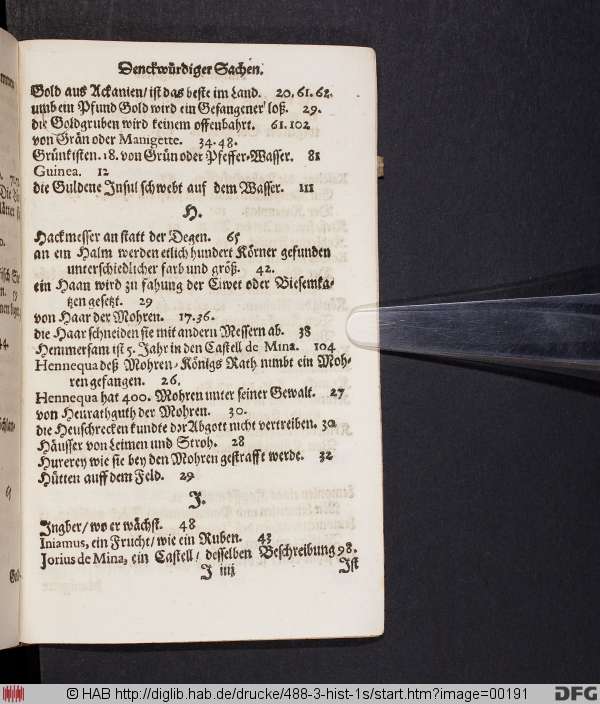 Denckwürdiger Sachen.
Gold aus Ackanien/ ist das beste im Land. 20. 61. 62.
umb ein Pfund Gold wird ein Gefangener loß. 29.
die Goldgruben wird keinem offenbahrt. 61. 102
von Grän oder Manigette. 34. 48.
Grünkisten. 18. von Grün oder Pfeffer-Wasser. 81
Guinea. 12
die Guldene Insul schwebt auf dem Wasser. 111
H.
Hackmesser an statt der Degen. 65
an ein Halm werden etlich hundert Körner gefunden
unterschiedlicher farb und größ. 42.
ein Haan wird zu fahung der Civet oder Biesemka-
tzen gesetzt. 29
von Haar der Mohren. 17. 36.
die Haar schneiden sie mit andern Messern ab. 38
Hemmersam ist 5. Jahr in den Castell de Mina. 104
Hennequa deß Mohren-Königs Rath nimbt ein Moh-
ren gefangen. 26.
Hennequa hat 400. Mohren unter seiner Gewalt. 27
von Heurathguth der Mohren. 30.
die Heuschrecken kundte der Abgott nicht vertreiben. 30
Häusser von Leimen und Stroh. 28
Hurerey wie sie bey den Mohren gestrafft werde. 32
Hütten auff dem Feld. 29
J.
Ingber/ wo er wächst. 48
Iniamus, ein Frucht/ wie ein Ruben. 43
Jorius de Mina, ein Castell/ desselben Beschreibung 98.
J iiij
Ist
© HAB http://diglib.hab.de/drucke/488-3-hist-1s/start.htm?image=00191
DFG